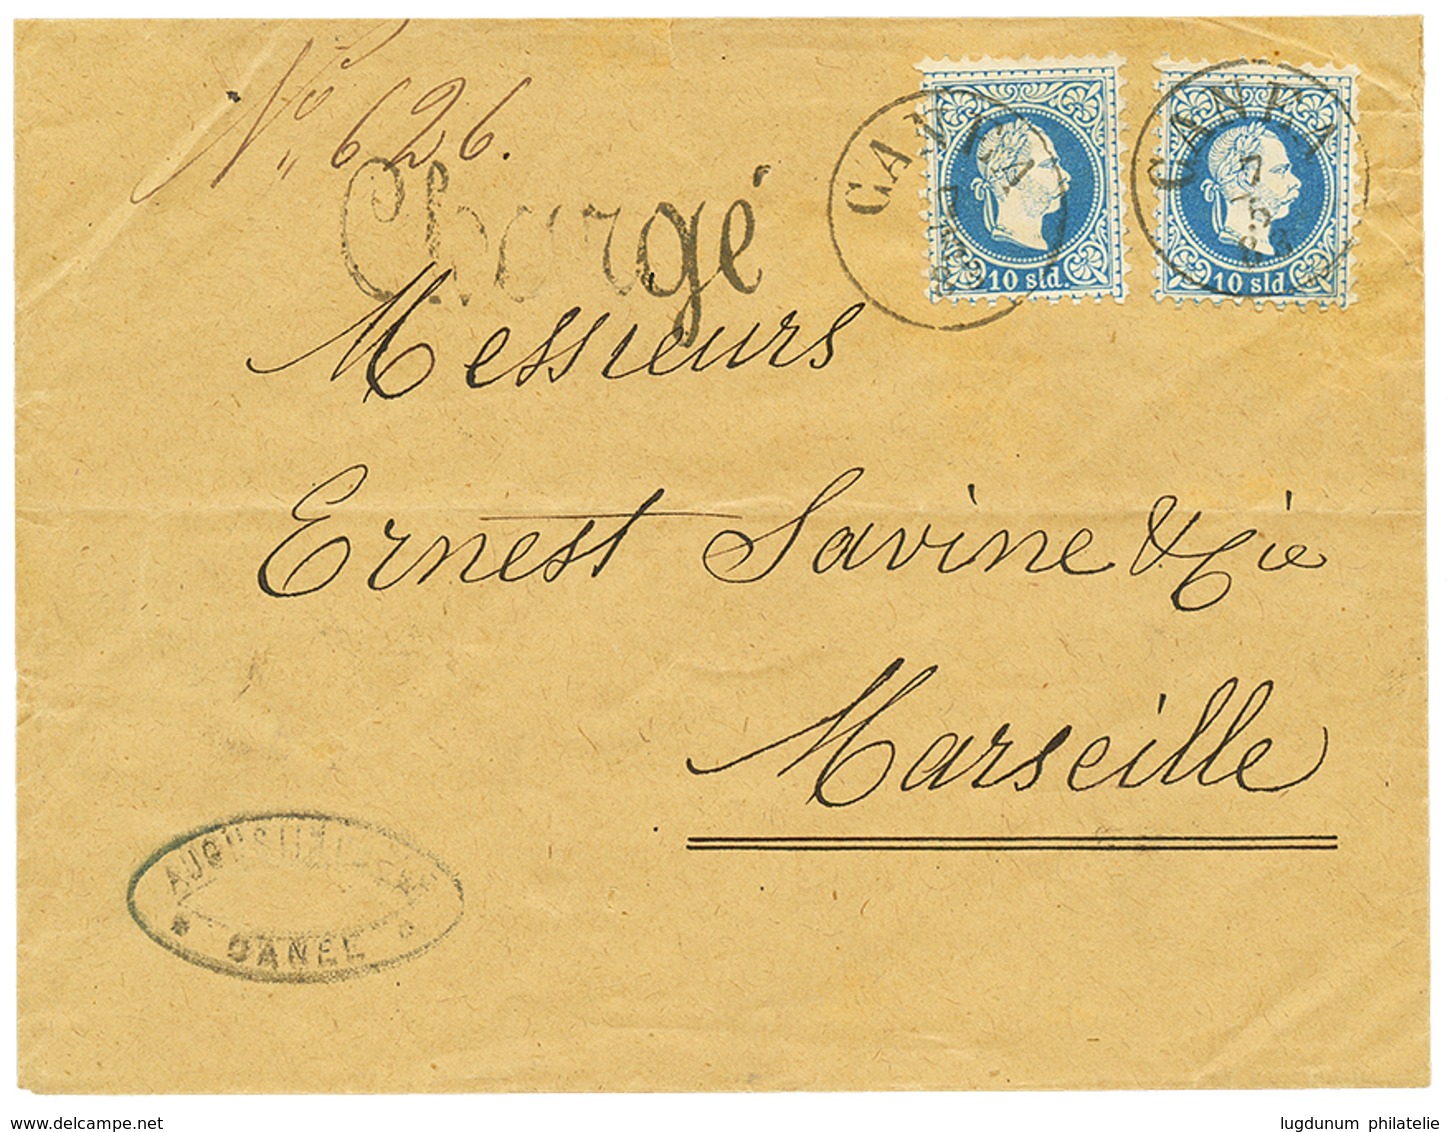 No 626.
Chargé
CANEA
10 sld.
CANEA
7
10 sld.
Messieurs
Ernest Savine & Cie
Marseille
CANEE
www.delcampe.net
lugdunum philatelie